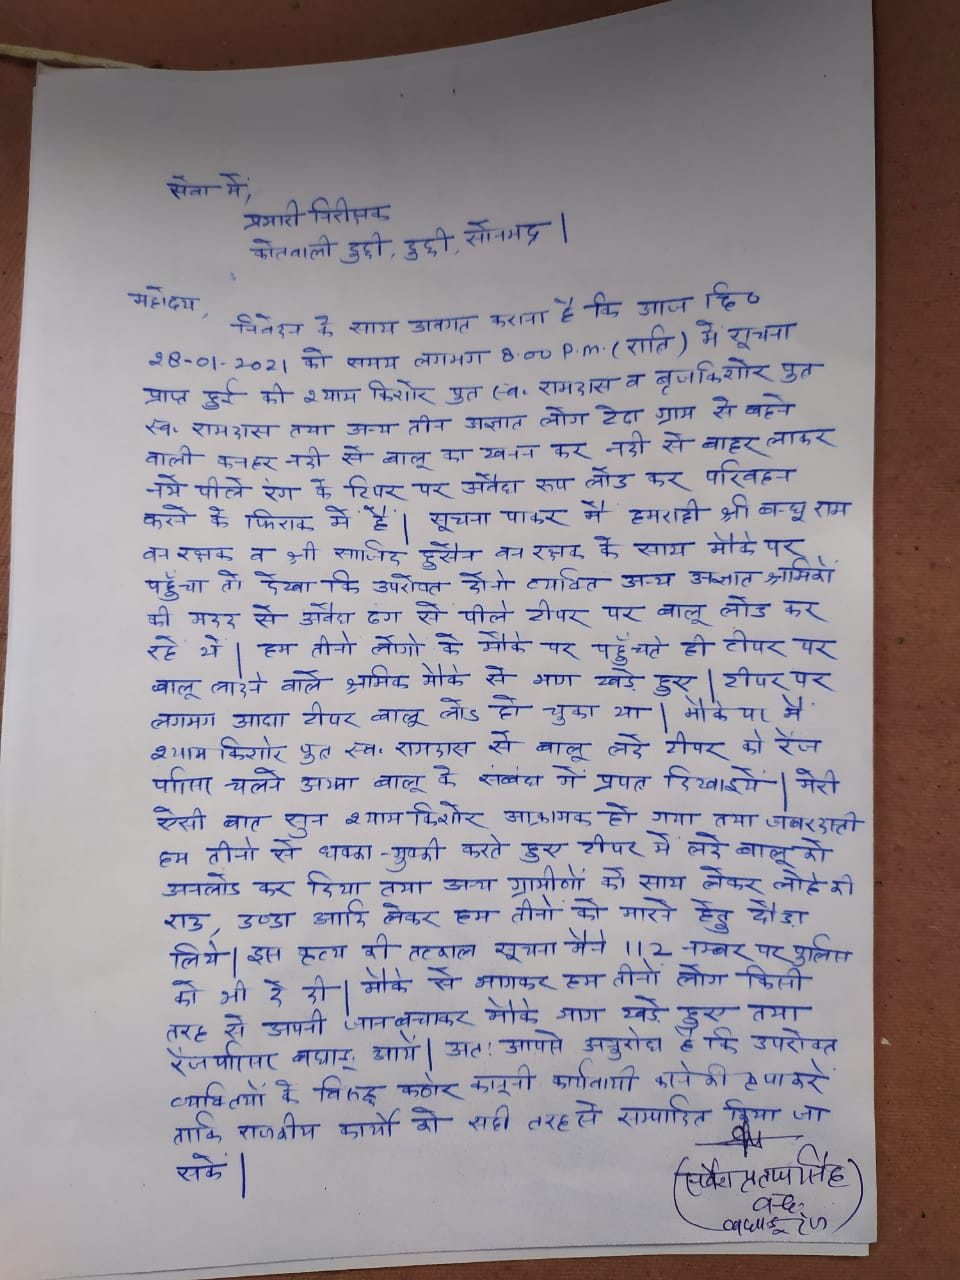 सेवा में,
प्रभारी निरीक्षक
कोतवाली दुद्दी, दुद्दी, सोनभद्र |
महोदय,
निवेदन के साथ अवगत कराना है कि आज दि०
28-01-2021 को समय लगभग 8.00 P.m. (रात्रि) में सूचना
प्राप्त हुई की श्याम किशोर पुत्र स्व. रामदास व बृजकिशोर पुत्र
स्व. रामदास तथा अन्य तीन अज्ञात लोग टेढा ग्राम से बहने
वाली कनहर नदी से बालू का खनन कर नदी से बाहर लाकर
नये पीले रंग के टिपर पर अवैध रूप लोड कर परिवहन
करने के फिराक में हैं | सूचना पाकर मैं हमराही श्री बन्धू राम
वन रक्षक व श्री साजिद हुसैन वन रक्षक के साथ मौके पर
पहुँचा तो देखा कि उपरोक्त दोनो व्यक्ति अन्य अज्ञात श्रमिकों
की मदद से अवैध ढंग से पीले टीपर पर बालू लोड कर
रहे थे | हम तीनो लोगो के मौके पर पहुँचते ही टीपर पर
बालू लादने वाले श्रमिक मौके से भाग खड़े हुए | टीपर पर
लगभग आधा टीपर बालू लोड हो चुका था | मौके पर मैं
श्याम किशोर पुत्र स्व. रामदास से बालू लदे टीपर को रेंज
परिसर चलने अथवा बालू के संबंध में प्रपत्र दिखाइये | मेरी
ऐसी बात सुन श्याम किशोर आक्रामक हो गया तथा जबरदस्ती
हम तीनो से धक्का-मुक्की करते हुए टीपर में लदे बालू को
अनलोड कर दिया तथा अन्य ग्रामीणों को साथ लेकर लोहे की
राड, डण्डा आदि लेकर हम तीनों को मारने हेतु दौडा
लिये | इस कृत्य की तत्काल सूचना मैने 112 नम्बर पर पुलिस
को भी दे दी | मौके से भागकर हम तीनों लोग किसी
तरह से अपनी जान बचाकर मौके भाग खड़े हुए तथा
रेंज परिसर बघाडू आये | अतः आपसे अनुरोध है कि उपरोक्त
व्यक्तियों के विरुद्ध कठोर कानूनी कार्यवायी करने की कृपा करें
ताकि राजकीय कार्यो को सही तरह से सम्पादित किया जा
सके |
(सर्वेश प्रताप सिंह)
बघाडू रेंज